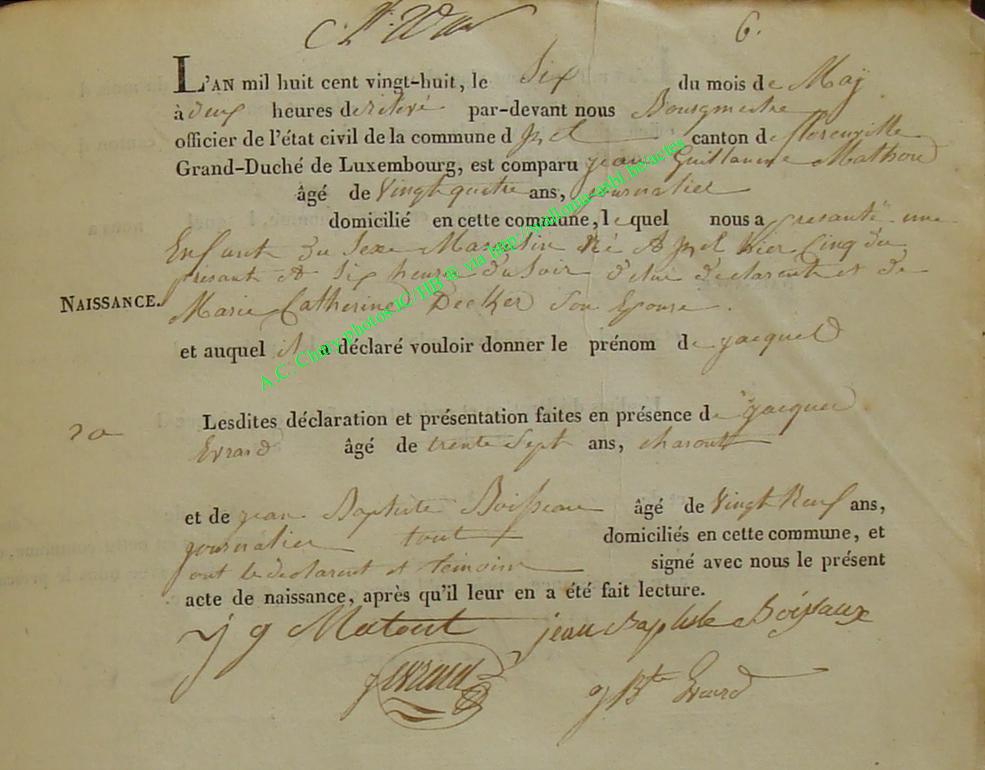 6.
L'AN mil huit cent vingt-huit, le Six du mois de Maÿ
à deux heures de relevé par-devant nous Bourgmestre
officier de l'état civil de la commune d canton de florenville
Grand-Duché de Luxembourg, est comparu jean Guillaume Mathou
âgé de Vingt quatre ans, journalier
domicilié en cette commune, lequel nous a presenté une
Enfant du Sexe Masculin Né A hier Cinq du
present A Six heure du Soir de lui declarent et de
NAISSANCE.
Marie Catherine Decker Son Epouse.
et auquel il a déclaré vouloir donner le prénom de jacques
20
Lesdites déclaration et présentation faites en présence de jacques
Evrard âgé de trente Sept ans,
et de jean Baptiste Boisseau âgé de Vingt Neuf ans,
journalier tout domiciliés en cette commune, et
ont le declarent et temoins signé avec nous le présent
acte de naissance, après qu'il leur en a été fait lecture.
j g Matout jean Baptiste Boissaux
jevrard
j Bte Evrard
A.C. Chiny photos IC/HB ® via http://wallonia-asbl.be/actes